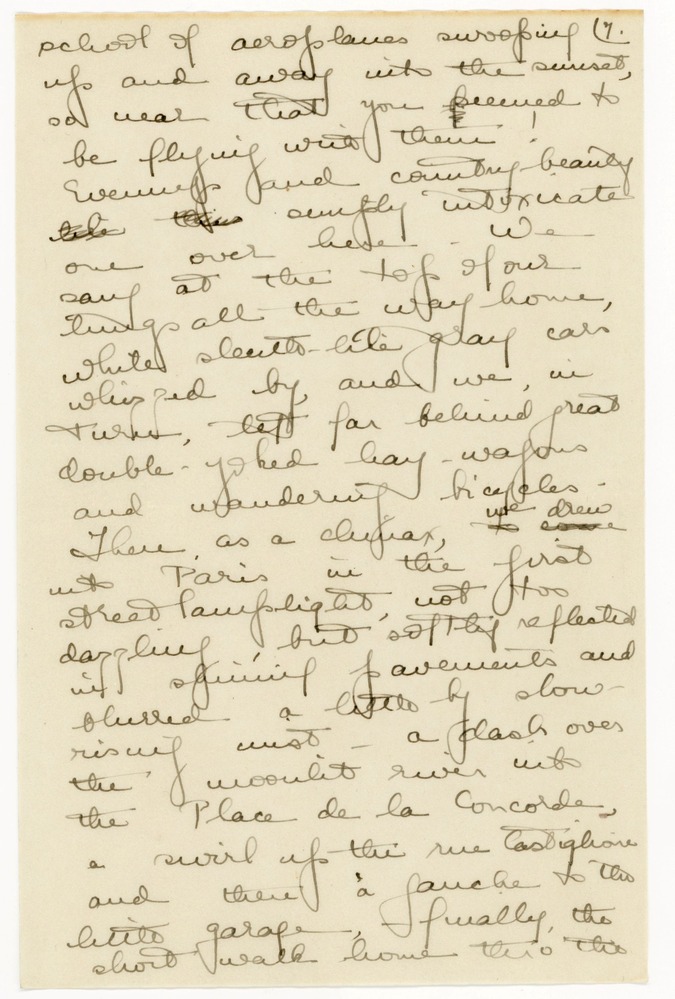 school of aeroplanes swooping (7.
up and away into the sunset,
so near that you seemed to
be flying with them!
Evenings and country-beauty
like this simply intoxicate
one over here - We
sang at the top of our
lungs all the way home,
while sleuth-like gray cars
whizzed by, and we, in
turn, left far behind great
double-yoked hay-wagons
and wandering bicycles -
Then, as a climax, to come we drew
into Paris in the first
street lamplight, not too
dazzling, but softly reflected
in shining pavements and
blurred a little by slow-
rising mist - a dash over
the moonlit river into
the Place de la Concorde,
a swirl up the rue Castiglione
and then à gauche to the
little garage, - finally, the
short walk home thro' the